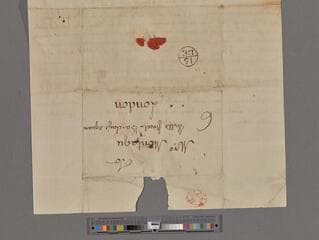 To
Mrs Montagu
Hill Street Barclay Square
London
6
15